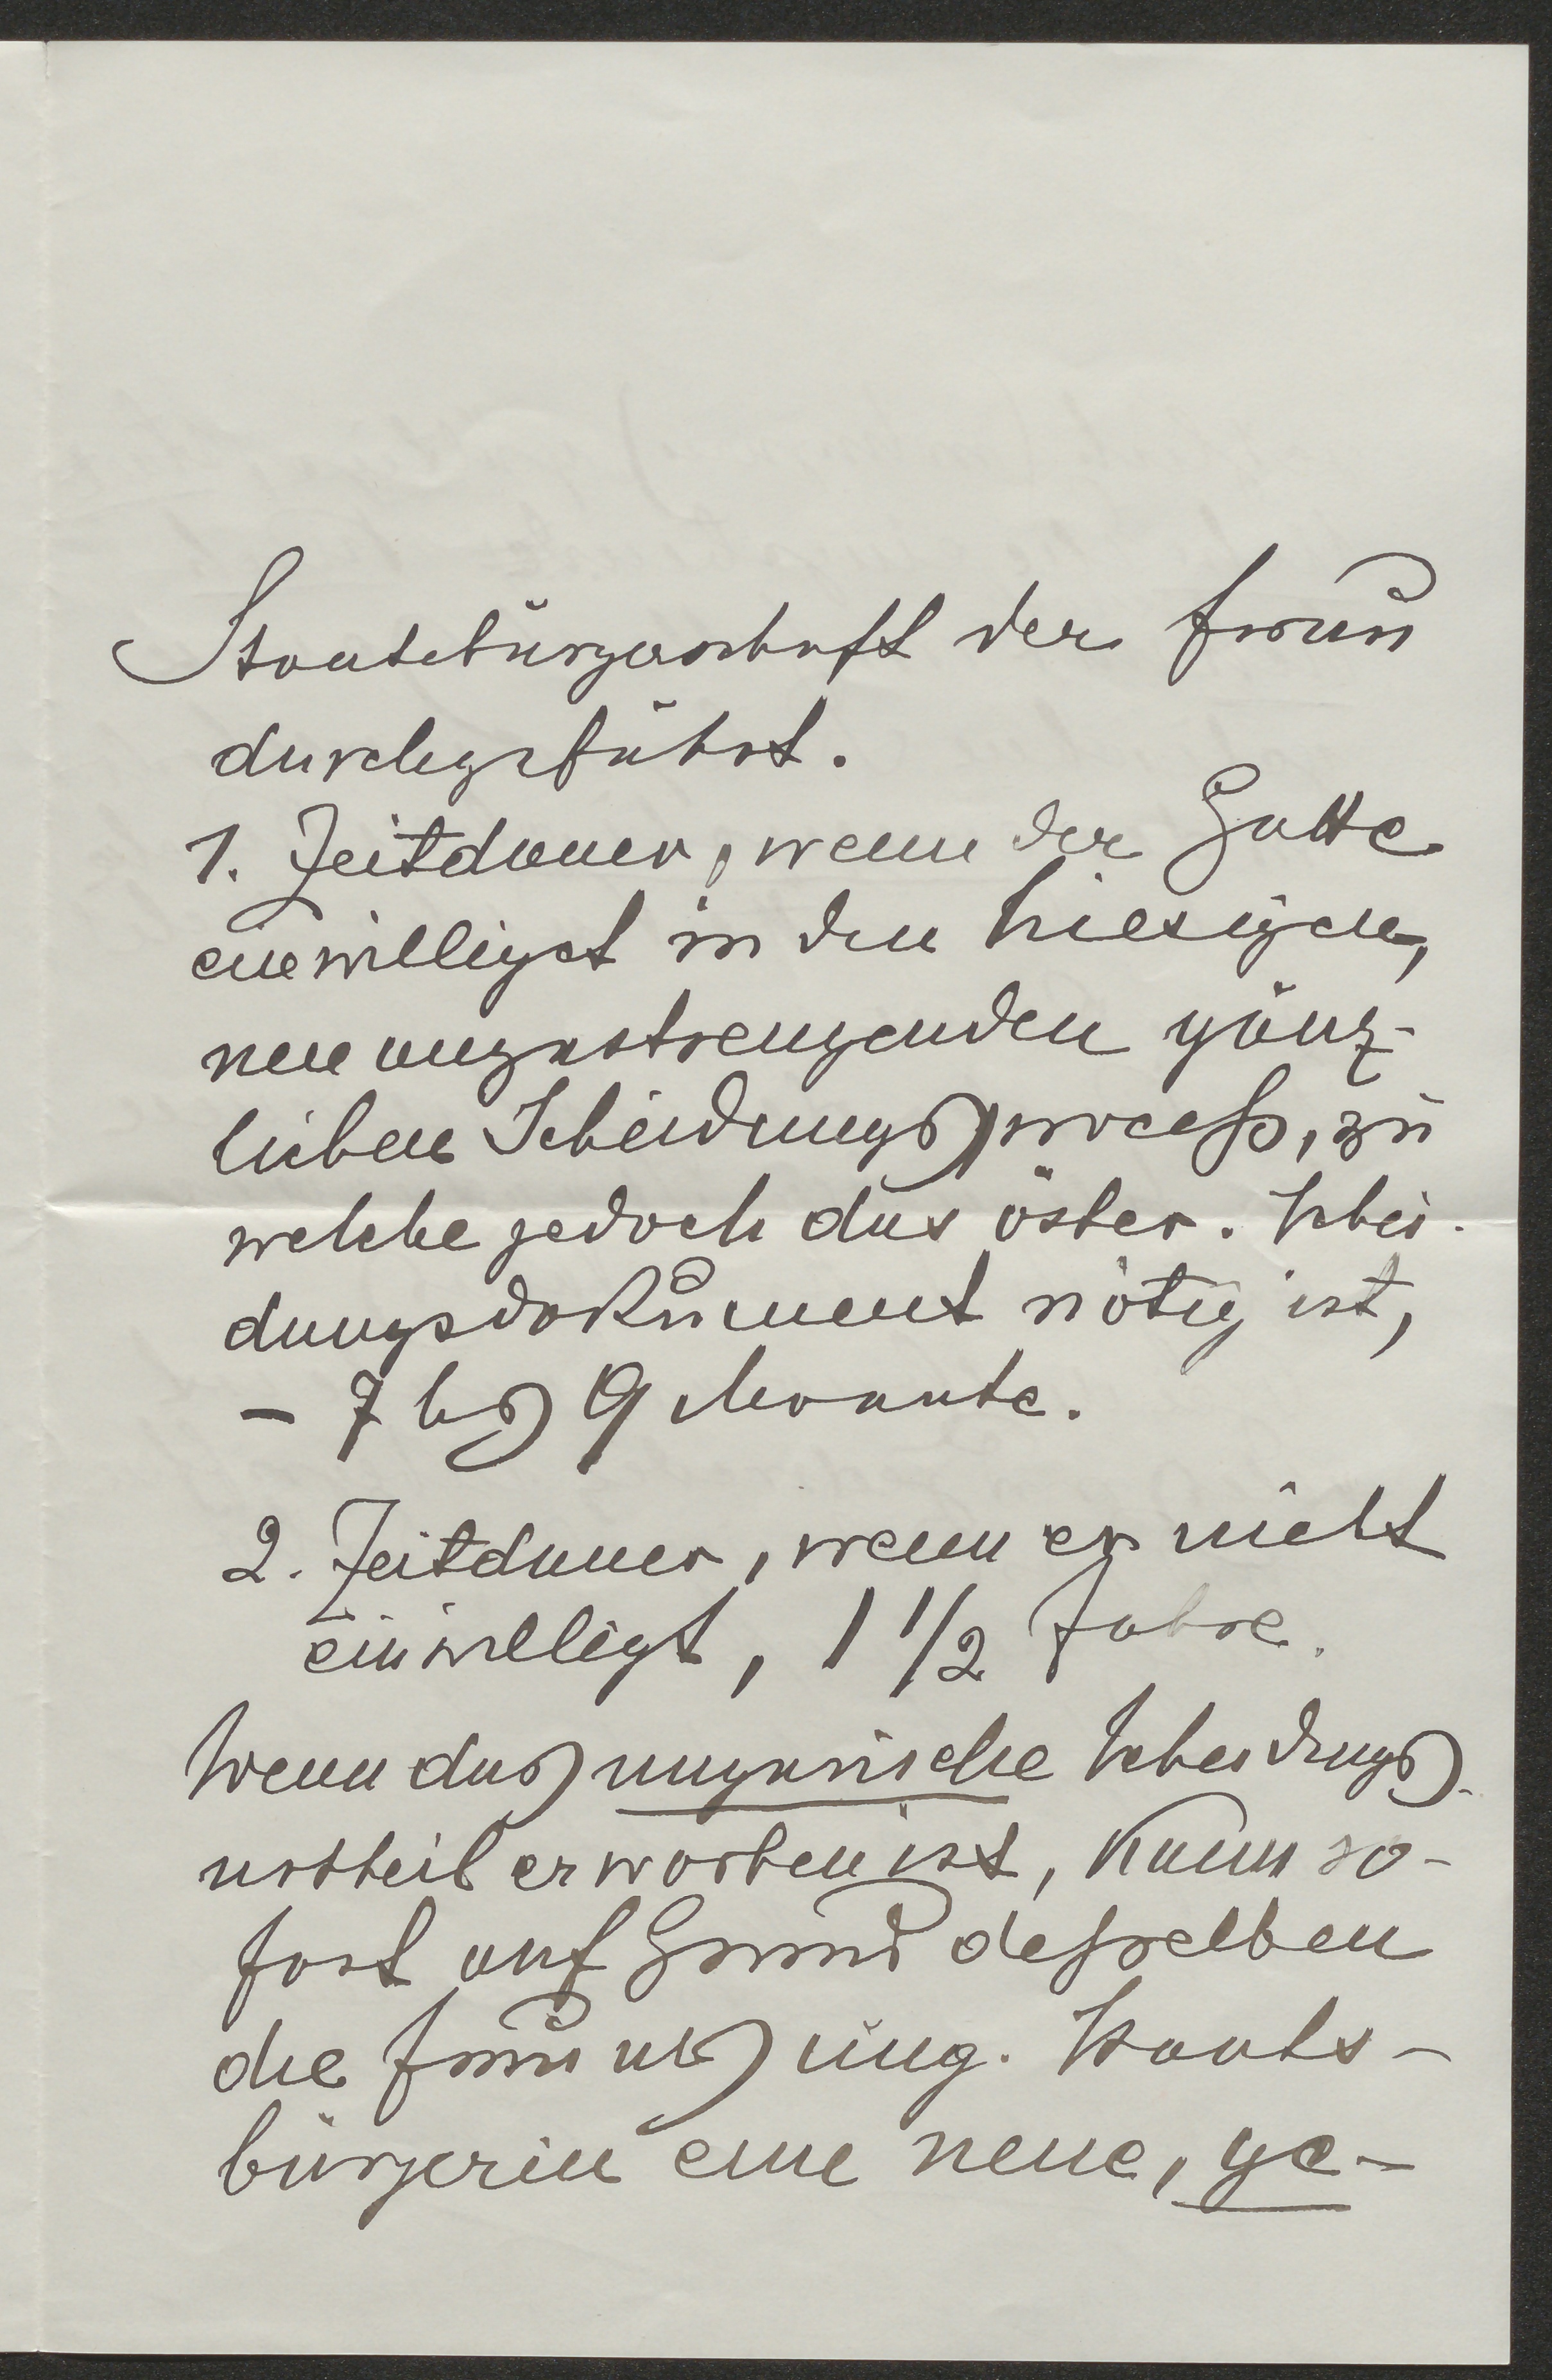 Staatsbürgerschaft der Frau
durchgeführt.
1. Zeitdauer, wenn der Gatte
einwilligt in den hiesigen,
neu anzustrengenden gänz-
lichen Scheidungsproceß, zu
welche jedoch das öster. Schei-
dungsdokument nötig ist,
– 7 bis 9 Monate.
2. Zeitdauer, wenn er nicht
einwilligt, 1 1/2 Jahre.
Wenn das ungarische Scheidungs-
urtheil erworben ist, kann so-
fort auf Grund desselben
die Frau als ung. Staats-
bürgerin eine neue, ge-